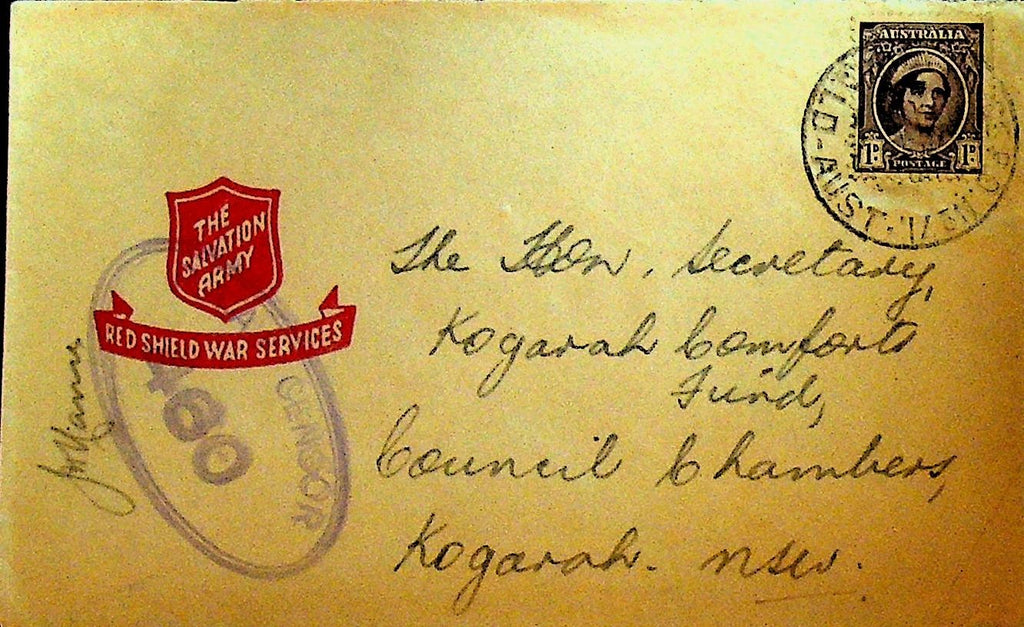 AUSTRALIA
1D POSTAGE 1D
AUST.
THE
SALVATION
ARMY
RED SHIELD WAR SERVICES
CENSOR
460
The Hon. Secretary,
Kogarah Comforts
Fund,
Council Chambers,
Kogarah. NSW.